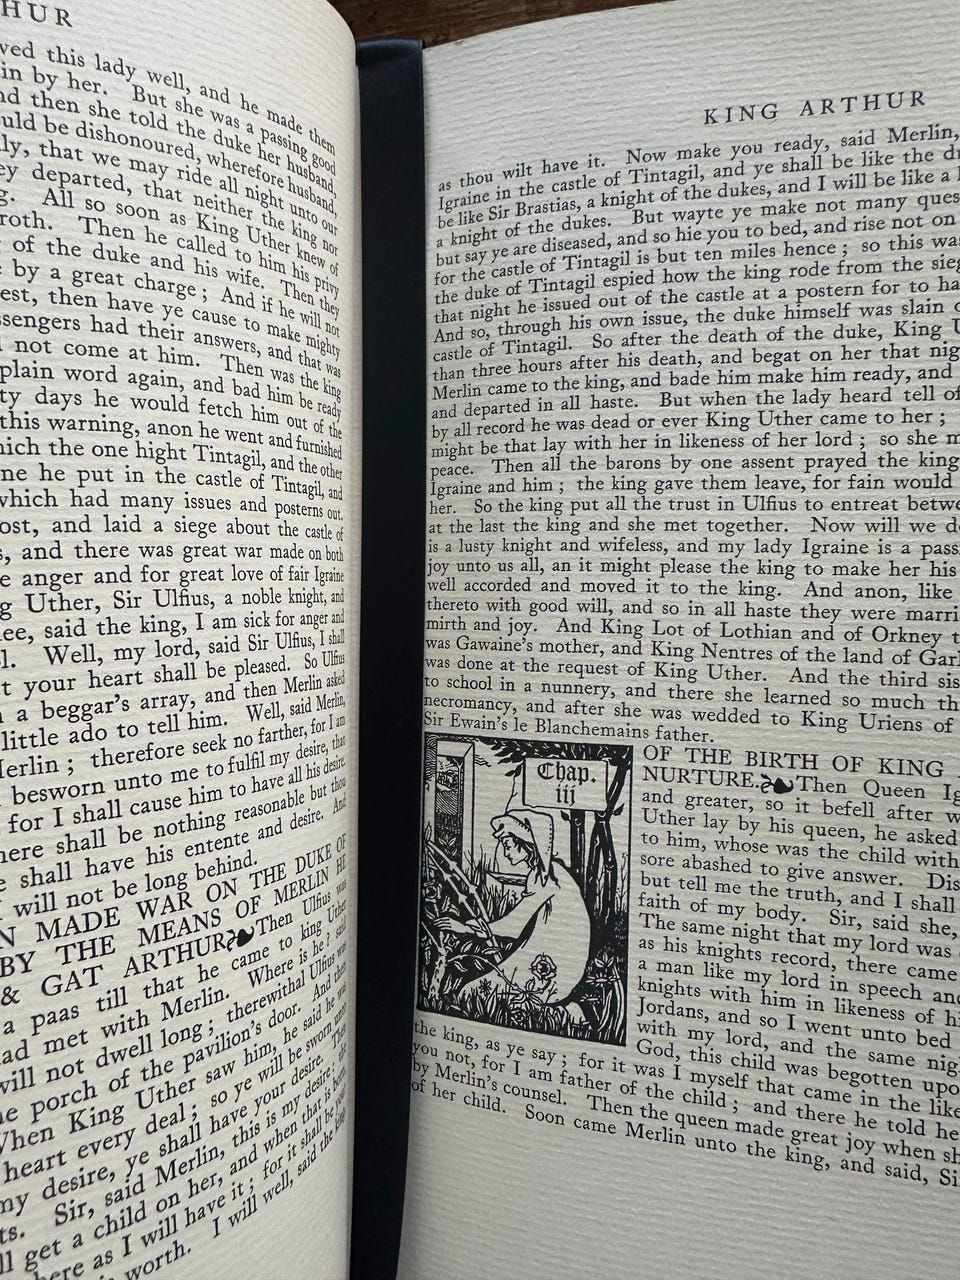 HUR
ved this lady well, and he made them
in by her. But she was a passing good
nd then she told the duke her husband,
uld be dishonoured, wherefore husband,
ly, that we may ride all night unto our
ey departed, that neither the king nor
g. All so soon as King Uther knew of
roth. Then he called to him his privy
of the duke and his wife. Then they
by a great charge; And if he will not
est, then have ye cause to make mighty
ssengers had their answers, and that was
not come at him. Then was the king
plain word again, and bad him be ready
ty days he would fetch him out of the
this warning, anon he went and furnished
hich the one hight Tintagil, and the other
ne he put in the castle of Tintagil, and
which had many issues and posterns out.
ost, and laid a siege about the castle of
s, and there was great war made on both
e anger and for great love of fair Igraine
g Uther, Sir Ulfius, a noble knight, and
ee, said the king, I am sick for anger and
l. Well, my lord, said Sir Ulfius, I shall
t your heart shall be pleased. So Ulfius
a beggar's array, and then Merlin asked
little ado to tell him. Well, said Merlin,
Merlin; therefore seek no farther, for I am
besworn unto me to fulfil my desire, that
for I shall cause him to have all his desire.
here shall be nothing reasonable but thou
e shall have his entente and desire. And
will not be long behind.
N MADE WAR ON THE DUKE OF
BY THE MEANS OF MERLIN HE
& GAT ARTHUR Then Ulfius was
a paas till that he came to king Uther
had met with Merlin. Where is he? said
will not dwell long; therewithal Ulfius was
he porch of the pavilion's door. And then
When King Uther saw him, he said he was
heart every deal; so ye will be sworn unto
my desire, ye shall have your desire. Then
ts. Sir, said Merlin, this is my desire: the
ll get a child on her, and when that is born,
here as I will have it; for it shall be your
worth. I will well, said the king,
KING ARTHUR
as thou wilt have it. Now make you ready, said Merlin,
Igraine in the castle of Tintagil, and ye shall be like the du
be like Sir Brastias, a knight of the dukes, and I will be like a
a knight of the dukes. But wayte ye make not many ques
but say ye are diseased, and so hie you to bed, and rise not on
for the castle of Tintagil is but ten miles hence; so this was
the duke of Tintagil espied how the king rode from the sieg
that night he issued out of the castle at a postern for to ha
And so, through his own issue, the duke himself was slain
castle of Tintagil. So after the death of the duke, King U
than three hours after his death, and begat on her that nig
Merlin came to the king, and bade him make him ready, and
and departed in all haste. But when the lady heard tell of
by all record he was dead or ever King Uther came to her;
might be that lay with her in likeness of her lord; so she m
peace. Then all the barons by one assent prayed the king
Igraine and him; the king gave them leave, for fain would
her. So the king put all the trust in Ulfius to entreat betwe
at the last the king and she met together. Now will we do
is a lusty knight and wifeless, and my lady Igraine is a passi
joy unto us all, an it might please the king to make her his
well accorded and moved it to the king. And anon, like
thereto with good will, and so in all haste they were marri
mirth and joy. And King Lot of Lothian and of Orkney t
was Gawaine's mother, and King Nentres of the land of Garl
was done at the request of King Uther. And the third sis
to school in a nunnery, and there she learned so much th
necromancy, and after she was wedded to King Uriens of
Sir Ewain's le Blanchemains father.
Chap.
iij
OF THE BIRTH OF KING
NURTURE. Then Queen Ig
and greater, so it befell after w
Uther lay by his queen, he asked
to him, whose was the child with
sore abashed to give answer. Dis
but tell me the truth, and I shall
faith of my body. Sir, said she,
The same night that my lord was
as his knights record, there came
a man like my lord in speech and
knights with him in likeness of hi
Jordans, and so I went unto bed
with my lord, and the same nig
God, this child was begotten upo
the king, as ye say; for it was I myself that came in the like
you not, for I am father of the child; and there he told he
by Merlin's counsel. Then the queen made great joy when sh
of her child. Soon came Merlin unto the king, and said, Si